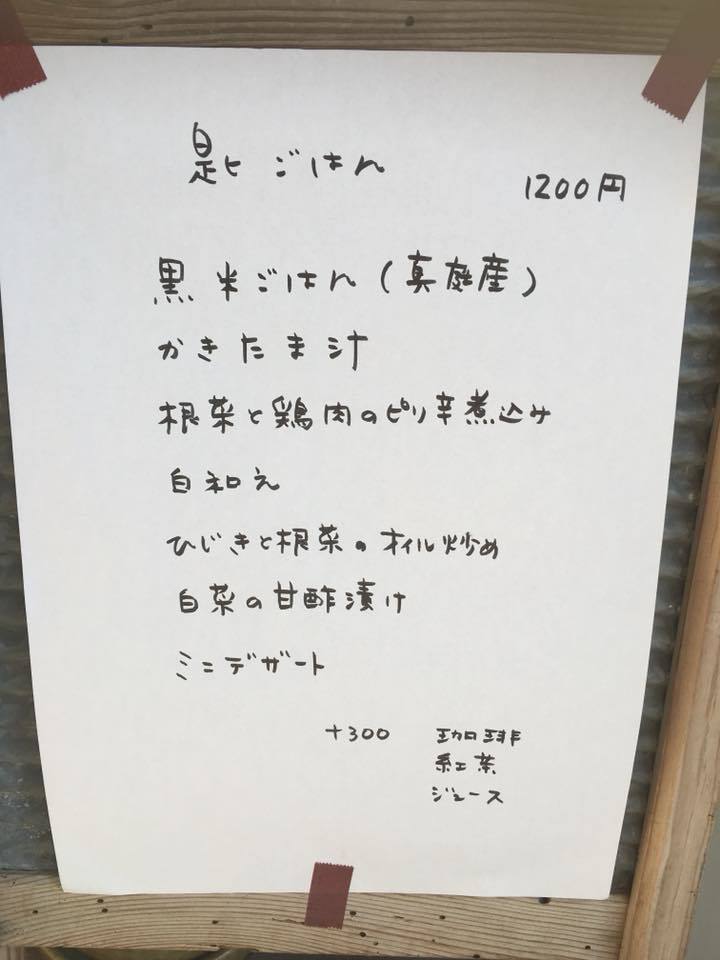 匙ごはん
1200円
黒米ごはん(真庭産)
かきたま汁
根菜と鶏肉のピリ辛煮込み
白和え
ひじきと根菜のオイル炒め
白菜の甘酢漬け
ミニデザート
+300 珈琲
紅茶
ジュース